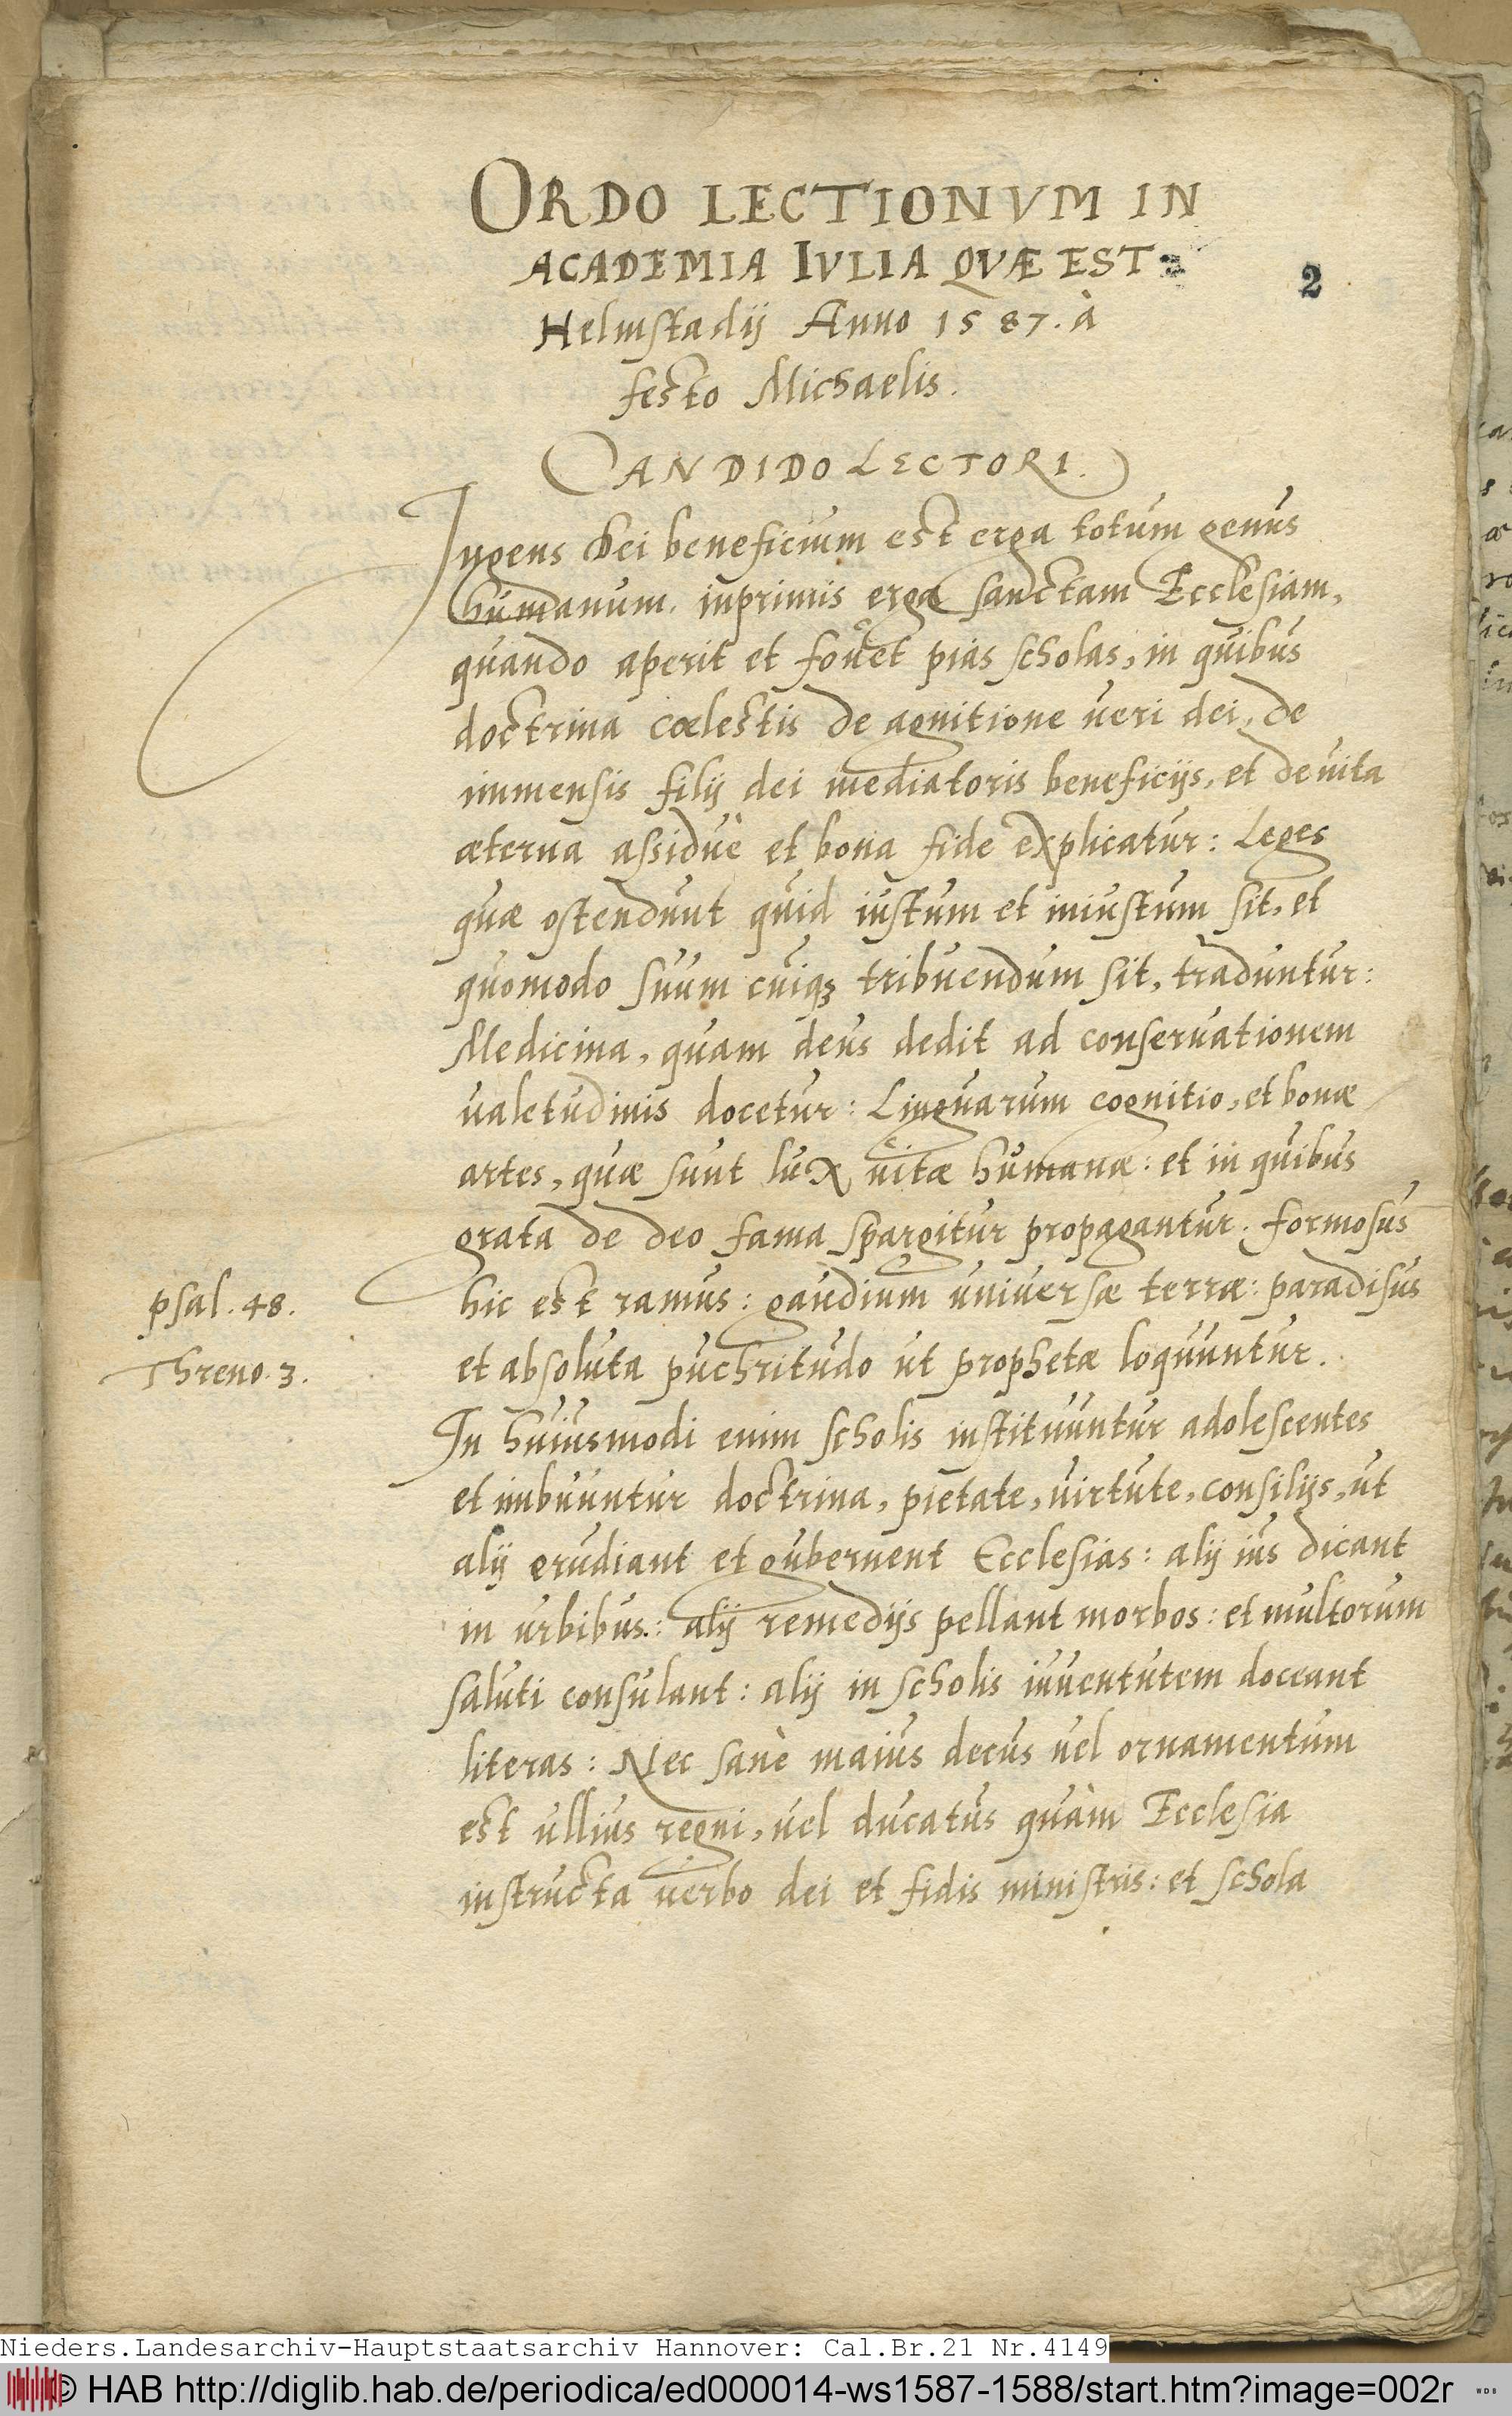 ORDO LECTIONVM IN
ACADEMIA IVLIA QVÆ EST
2
Helmstadij Anno 1587. à
festo Michaelis.
CANDIDO LECTORI.
Ingens Dei beneficium est erga totum genus
humanum, inprimis erga sanctam Ecclesiam,
quando aperit et fovet pias scholas, in quibus
doctrina cœlestis de agnitione veri dei, de
immensis filij dei mediatoris beneficijs, et de vita
æterna assiduè et bona fide explicatur: Leges
quæ ostendunt quid iustum et iniustum sit, et
quomodo suum cuiqꝫ tribuendum sit, traduntur:
Medicina, quam deus dedit ad conservationem
valetudinis docetur: Linguarum cognitio, et bonæ
artes, quæ sunt lux vitæ humanæ: et in quibus
grata de deo fama spargitur propagantur. formosus
psal. 48.
hic est ramus: gaudium universæ terræ: paradisus
Threno. 3.
et absoluta puchritudo ut prophetæ loquuntur.
In huiusmodi enim scholis instituuntur adolescentes
et imbuuntur doctrina, pietate, virtute, consilijs, ut
alij erudiant et gubernent Ecclesias: alij ius dicant
in urbibus: alij remedijs pellant morbos: et multorum
saluti consulant: alij in scholis iuventutem doceant
literas: Nec sanè maius decus vel ornamentum
est ullius regni, vel ducatus quàm Ecclesia
instructa verbo dei et fidis ministris: et schola
Nieders.Landesarchiv-Hauptstaatsarchiv Hannover: Cal.Br.21 Nr.4149
© HAB http://diglib.hab.de/periodica/ed000014-ws1587-1588/start.htm?image=002r
WDB